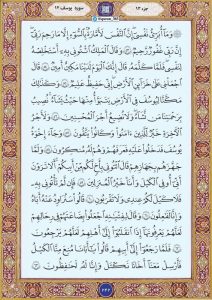 جزء ۱۳
سورة يوسف ۱۲
وَمَا أُبَرِّئُ نَفْسِي إِنَّ النَّفْسَ لَأَمَّارَةٌ بِالسُّوءِ إِلَّا مَا رَحِمَ
رَبِّي إِنَّ رَبِّي غَفُورٌ رَحِيمٌ وَقَالَ الْمَلِكُ ائْتُونِي بِهِ أَسْتَخْلِصْهُ
لِنَفْسِي فَلَمَّا كَلَّمَهُ قَالَ إِنَّكَ الْيَوْمَ لَدَيْنَا مَكِينٌ أَمِينٌ قَالَ
اجْعَلْنِي عَلَى خَزَائِنِ الْأَرْضِ إِنِّي حَفِيظٌ عَلِيمٌ وَكَذَلِكَ
مَكَّنَّا لِيُوسُفَ فِي الْأَرْضِ يَتَبَوَّأُ مِنْهَا حَيْثُ يَشَاءُ نُصِيبُ
بِرَحْمَتِنَا مَنْ نَشَاءُ وَلَا نُضِيعُ أَجْرَ الْمُحْسِنِينَ وَلَأَجْرُ
الْآخِرَةِ خَيْرٌ لِلَّذِينَ آمَنُوا وَكَانُوا يَتَّقُونَ وَجَاءَ إِخْوَةُ
يُوسُفَ فَدَخَلُوا عَلَيْهِ فَعَرَفَهُمْ وَهُمْ لَهُ مُنْكِرُونَ وَلَمَّا
جَهَّزَهُمْ بِجَهَازِهِمْ قَالَ ائْتُونِي بِأَخٍ لَكُمْ مِنْ أَبِيكُمْ أَلَا تَرَوْنَ
أَنِّي أُوفِي الْكَيْلَ وَأَنَا خَيْرُ الْمُنْزِلِينَ فَإِنْ لَمْ تَأْتُونِي بِهِ
فَلَا كَيْلَ لَكُمْ عِنْدِي وَلَا تَقْرَبُونِ قَالُوا سَنُرَاوِدُ عَنْهُ أَبَاهُ
وَإِنَّا لَفَاعِلُونَ وَقَالَ لِفِتْيَانِهِ اجْعَلُوا بِضَاعَتَهُمْ فِي رِحَالِهِمْ
لَعَلَّهُمْ يَعْرِفُونَهَا إِذَا انْقَلَبُوا إِلَى أَهْلِهِمْ لَعَلَّهُمْ يَرْجِعُونَ
فَلَمَّا رَجَعُوا إِلَى أَبِيهِمْ قَالُوا يَا أَبَانَا مُنِعَ مِنَّا الْكَيْلُ
فَأَرْسِلْ مَعَنَا أَخَانَا نَكْتَلْ وَإِنَّا لَهُ لَحَافِظُونَ
۲۴۲